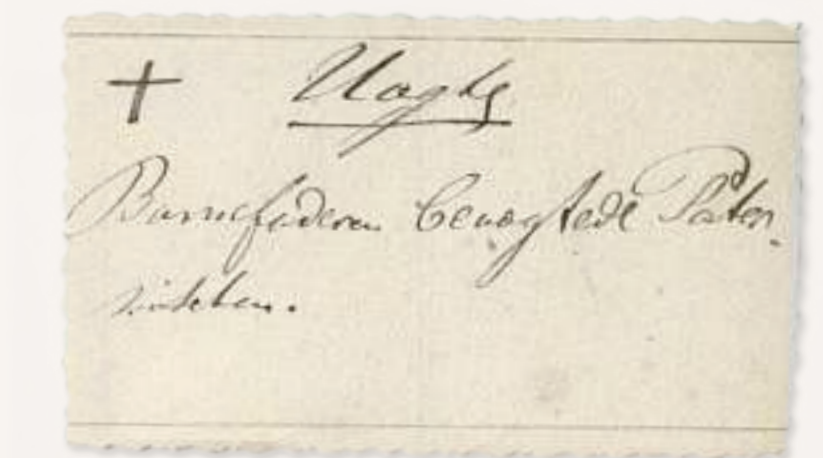 + Uagte
Barnefaderen benægtede Pater-
niteten.